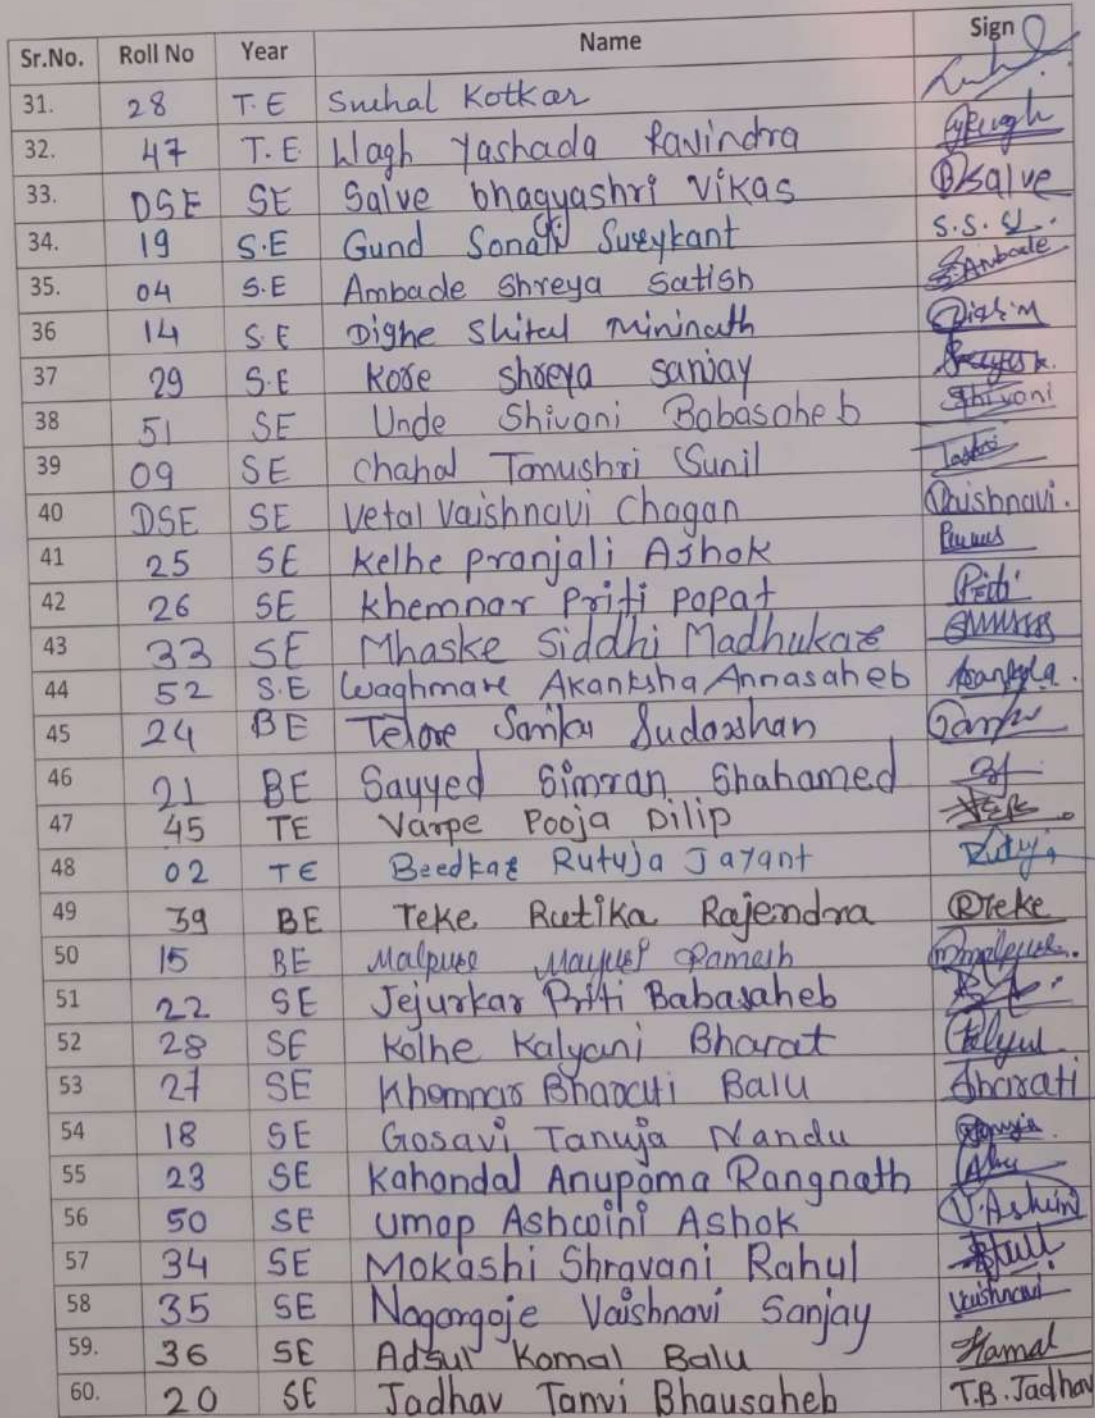 Sr.No. Roll No Year Name Sign
31. 28 T.E Snehal Kotkar
32. 47 T.E. Wagh Yashada Ravindra
33. DSE SE Salve bhagyashri Vikas BSalve
34. 19 S.E Gund Sonali Sureykant S.S.
35. 04 S.E Ambade Shreya Satish S.Ambade
36 14 S.E Dighe Shital Mininath
37 29 S.E Kore Shreya Sanjay
38 51 SE Unde Shivani Babasaheb Shivani
39 09 SE Chahal Tanushri Sunil
40 DSE SE Vetal Vaishnavi Chagan Vaishnavi.
41 25 SE Kelhe Pranjali Ashok
42 26 SE Khemnar Priti Popat Priti
43 33 SE Mhaske Siddhi Madhukar
44 52 S.E Waghmare Akanksha Annasaheb
45 24 BE Telore Sanika Sudarshan
46 21 BE Sayyed Simran Shahamed
47 45 TE Varpe Pooja Dilip
48 02 TE Beedkar Rutuja Jayant Rutuja
49 39 BE Teke Rutika Rajendra RTeke
50 15 BE Malpure Mayuri Ramesh
51 22 SE Jejurkar Priti Babasaheb
52 28 SE Kolhe Kalyani Bharat
53 27 SE Khemnar Bharati Balu Bharati
54 18 SE Gosavi Tanuja Nandu
55 23 SE Kahandal Anupama Rangnath
56 50 SE Umap Ashwini Ashok U.Ashwini
57 34 SE Mokashi Shravani Rahul
58 35 SE Nagargoje Vaishnavi Sanjay Vaishnavi
59. 36 SE Adsul Komal Balu Komal
60. 20 SE Jadhav Tanvi Bhausaheb T.B.Jadhav